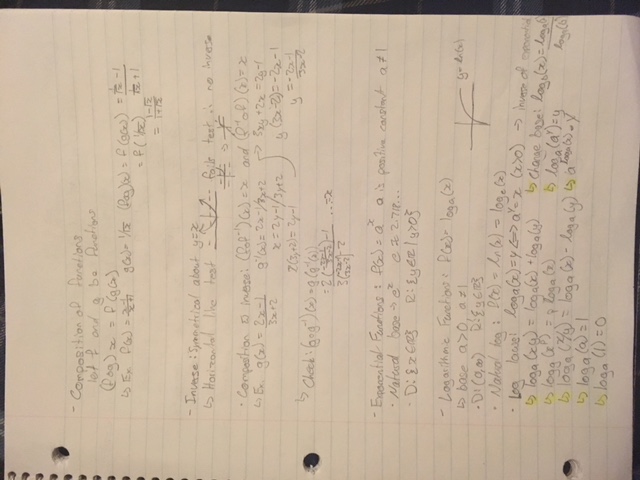 - Composition of functions
let f and g be functions
(fog)x = f(g(x))
↳ Ex. g(x) = 1/√x (fog)x = f(g(x)) = 1/√x - 1
= f(1/√x) 1/√x + 1
= 1-√x
1+√x
- Inverse: Symmetrical about y=x
↳ Horizontal line test fails test = no inverse
• Composition & inverse: (fof⁻¹)(x) = x and (f⁻¹of)(x) = x
↳ Ex. g(x) = 2x-1
3x+2
g⁻¹(x) = 2x-1/3x+2
x = 2y-1/3y+2
x(3y+2) = 2y-1
3xy+2x = 2y-1
y(3x-2) = -2x-1
y = -2x-1
3x-2
↳ Check: (gog⁻¹)(x) = g(g⁻¹(x)) ... = x
- Exponential Functions: f(x) = aˣ a is positive constant a≠1
• Natural base: eˣ e≈2.718...
• D: {x∈R} R: {y∈R | y>0}
- Logarithmic Functions: f(x) = logₐ(x)
↳ base a>0, a≠1 y = ln(x)
• D: (0,∞) R: {y∈R}
• Natural log: f(x) = ln(x) = logₑ(x)
• Log laws: logₐ(x) = y ⟺ aʸ = x (x>0) → inverse of exponential
↳ logₐ(xy) = logₐ(x) + logₐ(y) ↳ Change base: logₐ(x) = log_b(x)
log_b(a)
↳ logₐ(xᵖ) = p logₐ(x) ↳ logₐ(aʸ) = y
↳ logₐ(x/y) = logₐ(x) - logₐ(y)
↳ logₐ(a) = 1
↳ logₐ(1) = 0